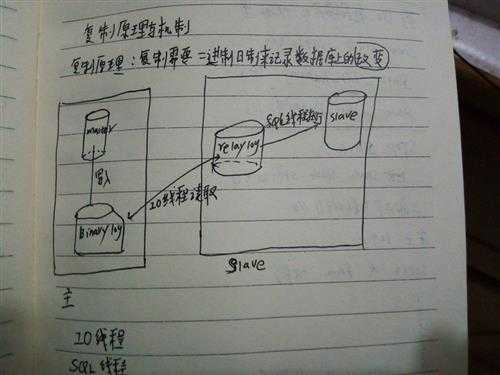 复制原理与机制
复制原理：复制需要二进制日志来记录数据库上的改变
master
写入
Binarylog
IO线程读取
relaylog
SQL线程执行
slave
Slave
主
IO线程
SQL线程